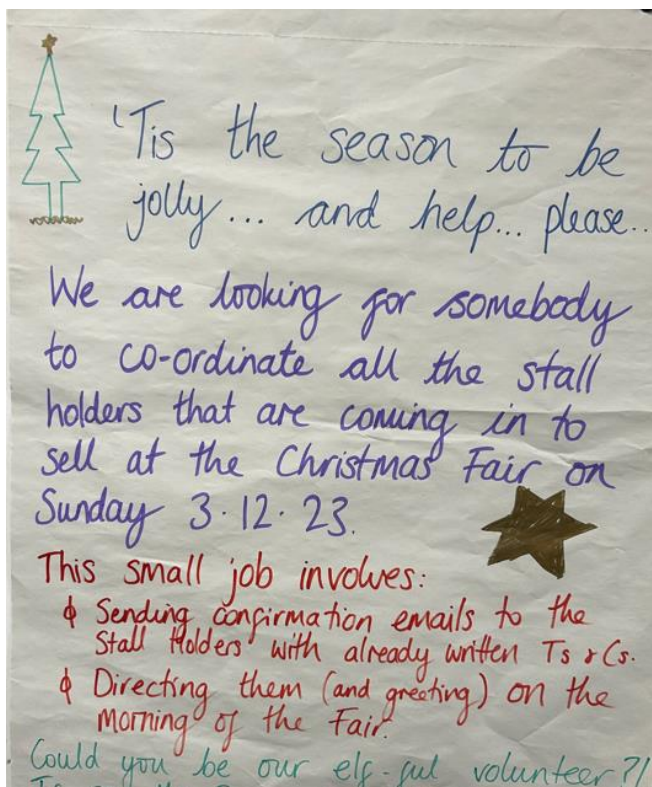 'Tis the season to be
jolly... and help... please..
We are looking for somebody
to co-ordinate all the stall
holders that are coming in to
sell at the Christmas Fair on
Sunday 3.12.23.
This small job involves:
Sending confirmation emails to the
Stall Holders with already written Ts & Cs.
Directing them (and greeting) on the
morning of the Fair.
Could you be our elf-ful volunteer?!